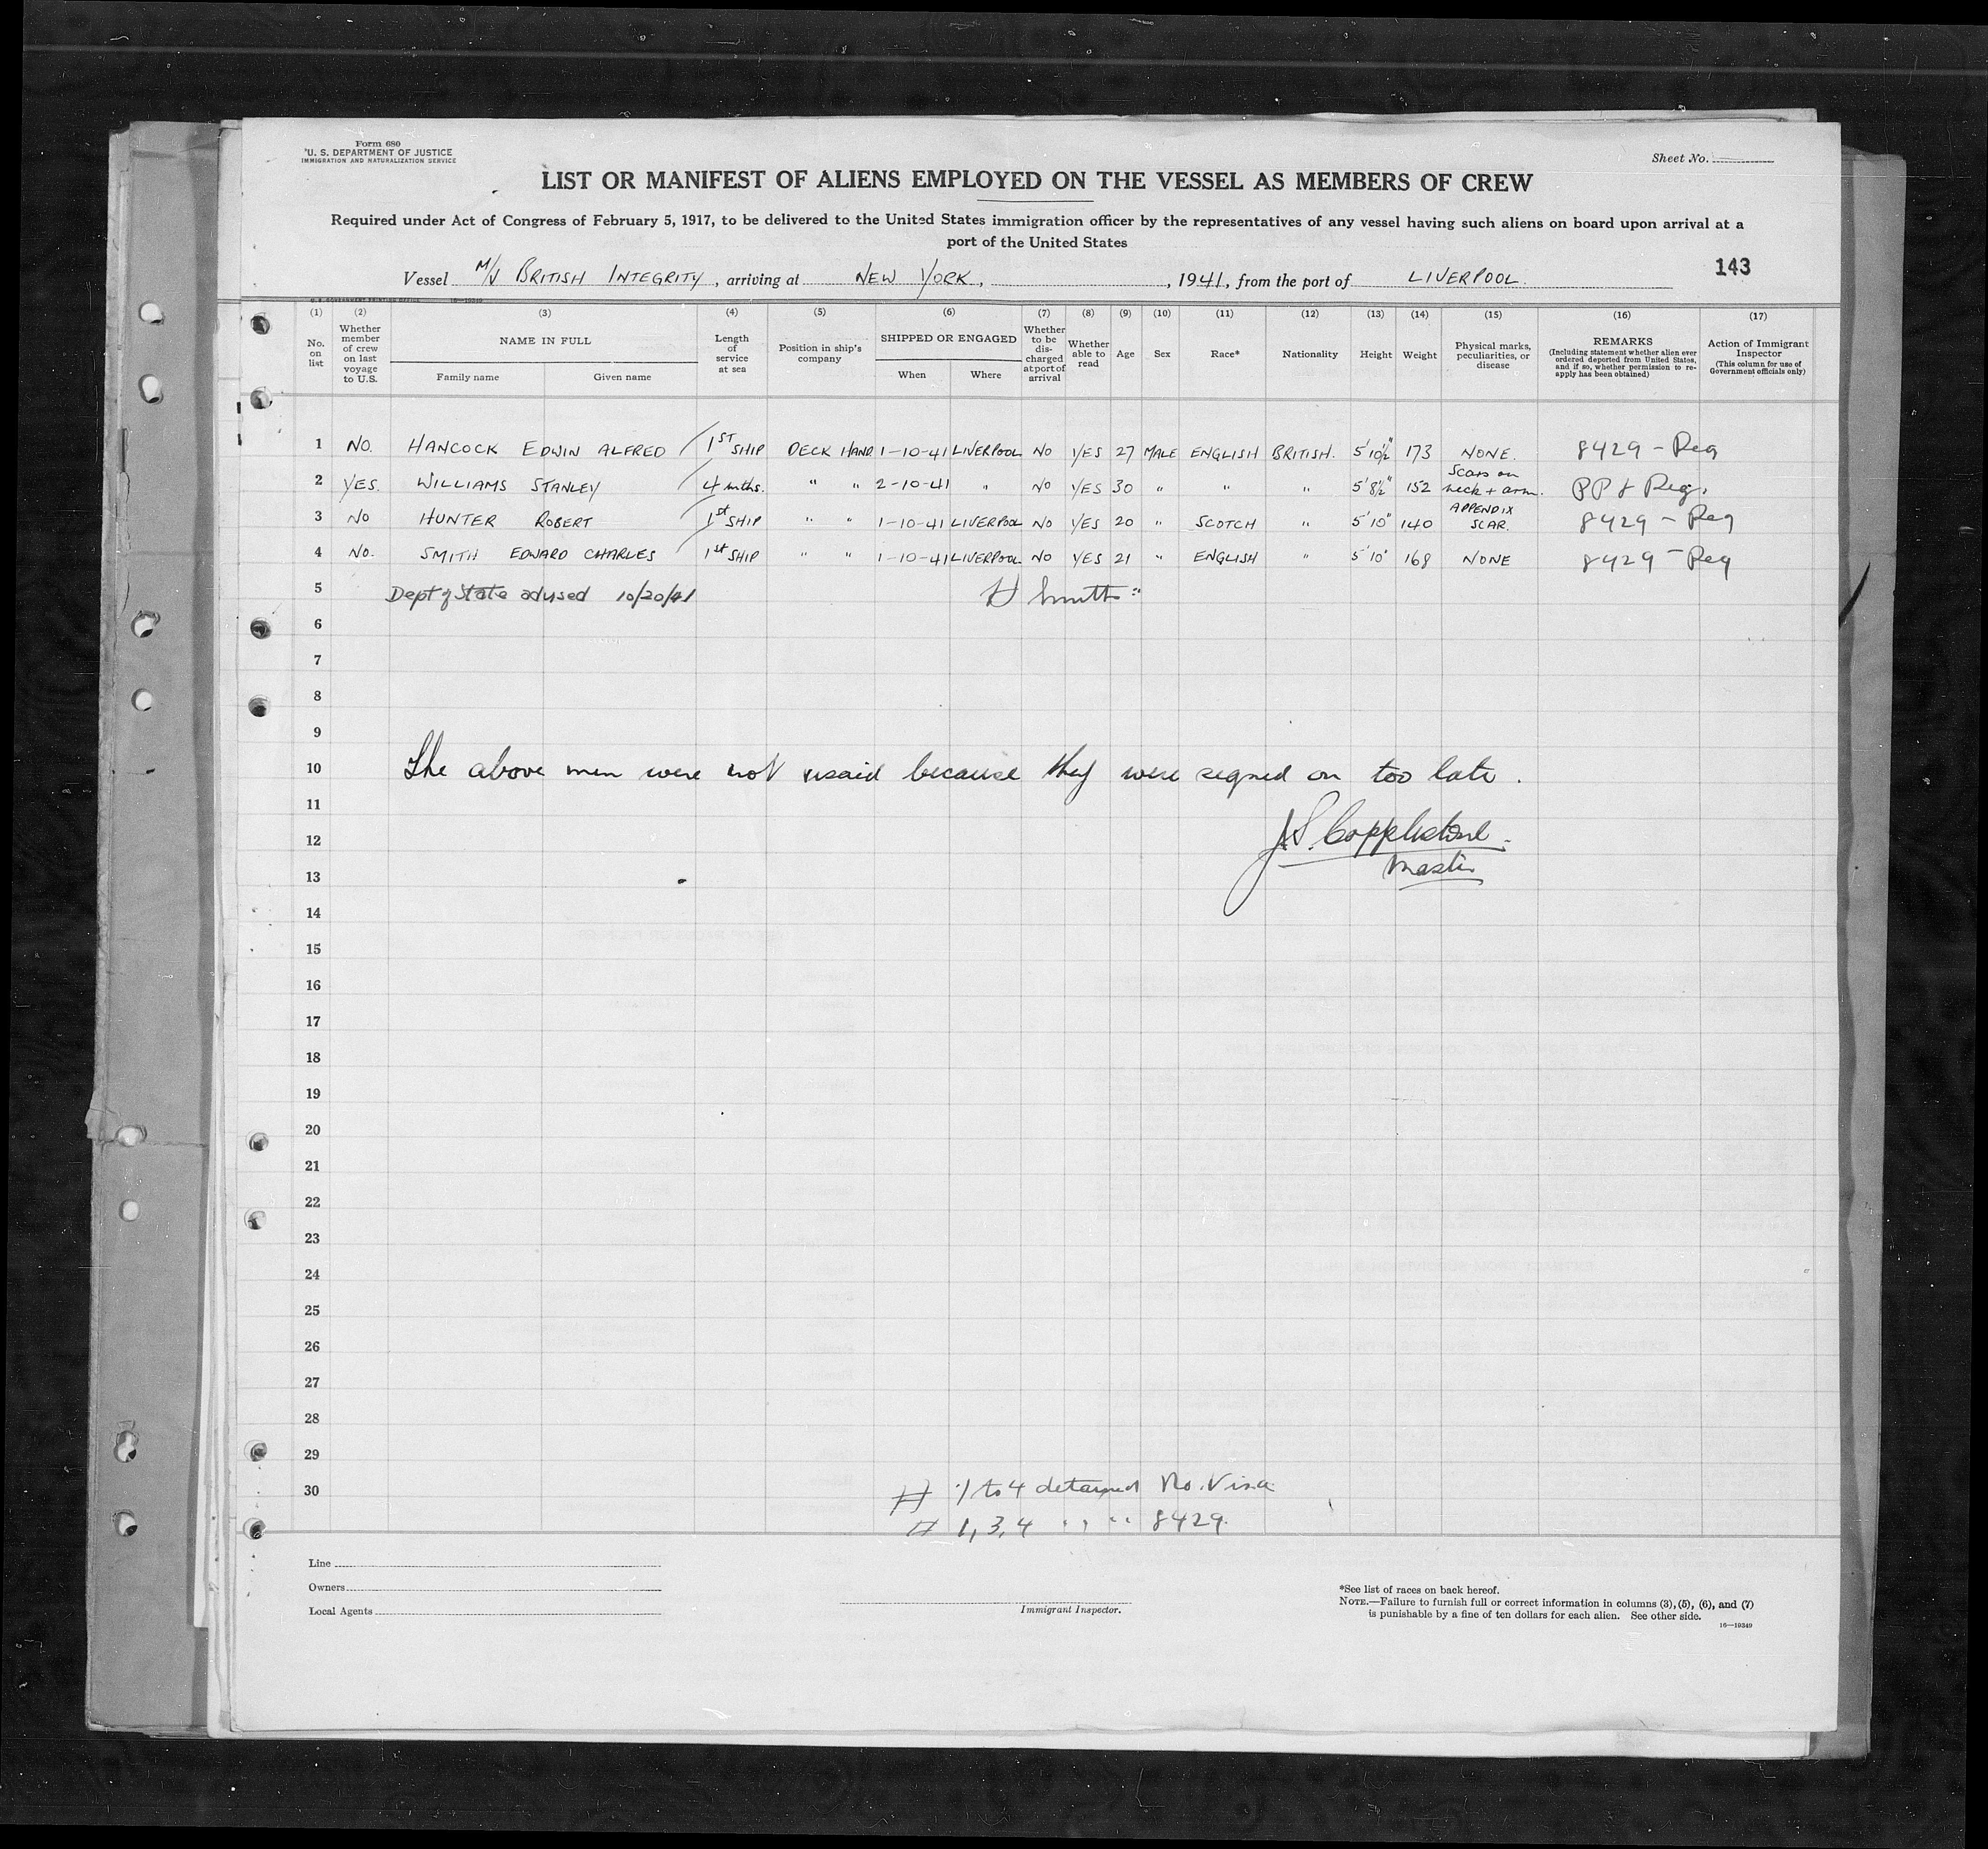 Form 680
U. S. DEPARTMENT OF JUSTICE
IMMIGRATION AND NATURALIZATION SERVICE
Sheet No.
LIST OR MANIFEST OF ALIENS EMPLOYED ON THE VESSEL AS MEMBERS OF CREW
Required under Act of Congress of February 5, 1917, to be delivered to the United States immigration officer by the representatives of any vessel having such aliens on board upon arrival at a
port of the United States
143
Vessel M/V BRITISH INTEGRITY, arriving at NEW YORK, , 1941, from the port of LIVERPOOL.
(1) (2) (3) (4) (5) (6) (7) (8) (9) (10) (11) (12) (13) (14) (15) (16) (17)
No. on list
Whether member of crew on last voyage to U.S.
NAME IN FULL
Family name Given name
Length of service at sea
Position in ship's company
SHIPPED OR ENGAGED
When Where
Whether to be discharged at port of arrival
Whether able to read
Age
Sex
Race*
Nationality
Height
Weight
Physical marks, peculiarities, or disease
REMARKS
(Including statement whether alien ever ordered deported from United States, and if so, whether permission to reapply has been obtained)
Action of Immigrant Inspector
(This column for use of Government officials only)
1 NO. HANCOCK EDWIN ALFRED 1ST SHIP DECK HAND 1-10-41 LIVERPOOL NO YES 27 MALE ENGLISH BRITISH. 5'10½" 173 NONE. 8429 - Reg
2 YES. WILLIAMS STANLEY 4 mths. " " 2-10-41 " NO YES 30 " " " 5'8½" 152 Scars on neck + arm. PP & Reg.
3 NO HUNTER ROBERT 1st SHIP " " 1-10-41 LIVERPOOL NO YES 20 " SCOTCH " 5'10" 140 APPENDIX SCAR. 8429 - Reg
4 NO. SMITH EDWARD CHARLES 1st SHIP " " 1-10-41 LIVERPOOL NO YES 21 " ENGLISH " 5'10" 168 NONE 8429 - Reg
5 Dept of State advised 10/20/41 Smith
6
7
8
9
10 The above men were not visaid because they were signed on too late.
11
12 J.S. Copplestone.
13 Master
14
15
16
17
18
19
20
21
22
23
24
25
26
27
28
29
30 # 1 to 4 detained No. Visa
# 1, 3, 4 " " " 8429.
Line
Owners
Local Agents
Immigrant Inspector.
*See list of races on back hereof.
NOTE.—Failure to furnish full or correct information in columns (3), (5), (6), and (7)
is punishable by a fine of ten dollars for each alien. See other side.
16—19349